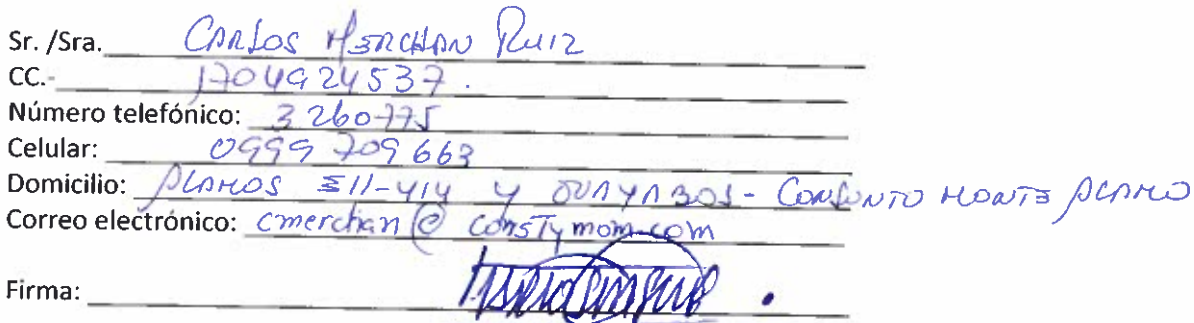 Sr. /Sra. CARLOS MERCHAN RUIZ
CC.- 1704924537.
Número telefónico: 3260-775
Celular: 0999 709 663
Domicilio: ALAMOS E11-414 y GUAYABOS - CONJUNTO MONTE ALAMO
Correo electrónico: cmerchan@constymom.com
Firma: